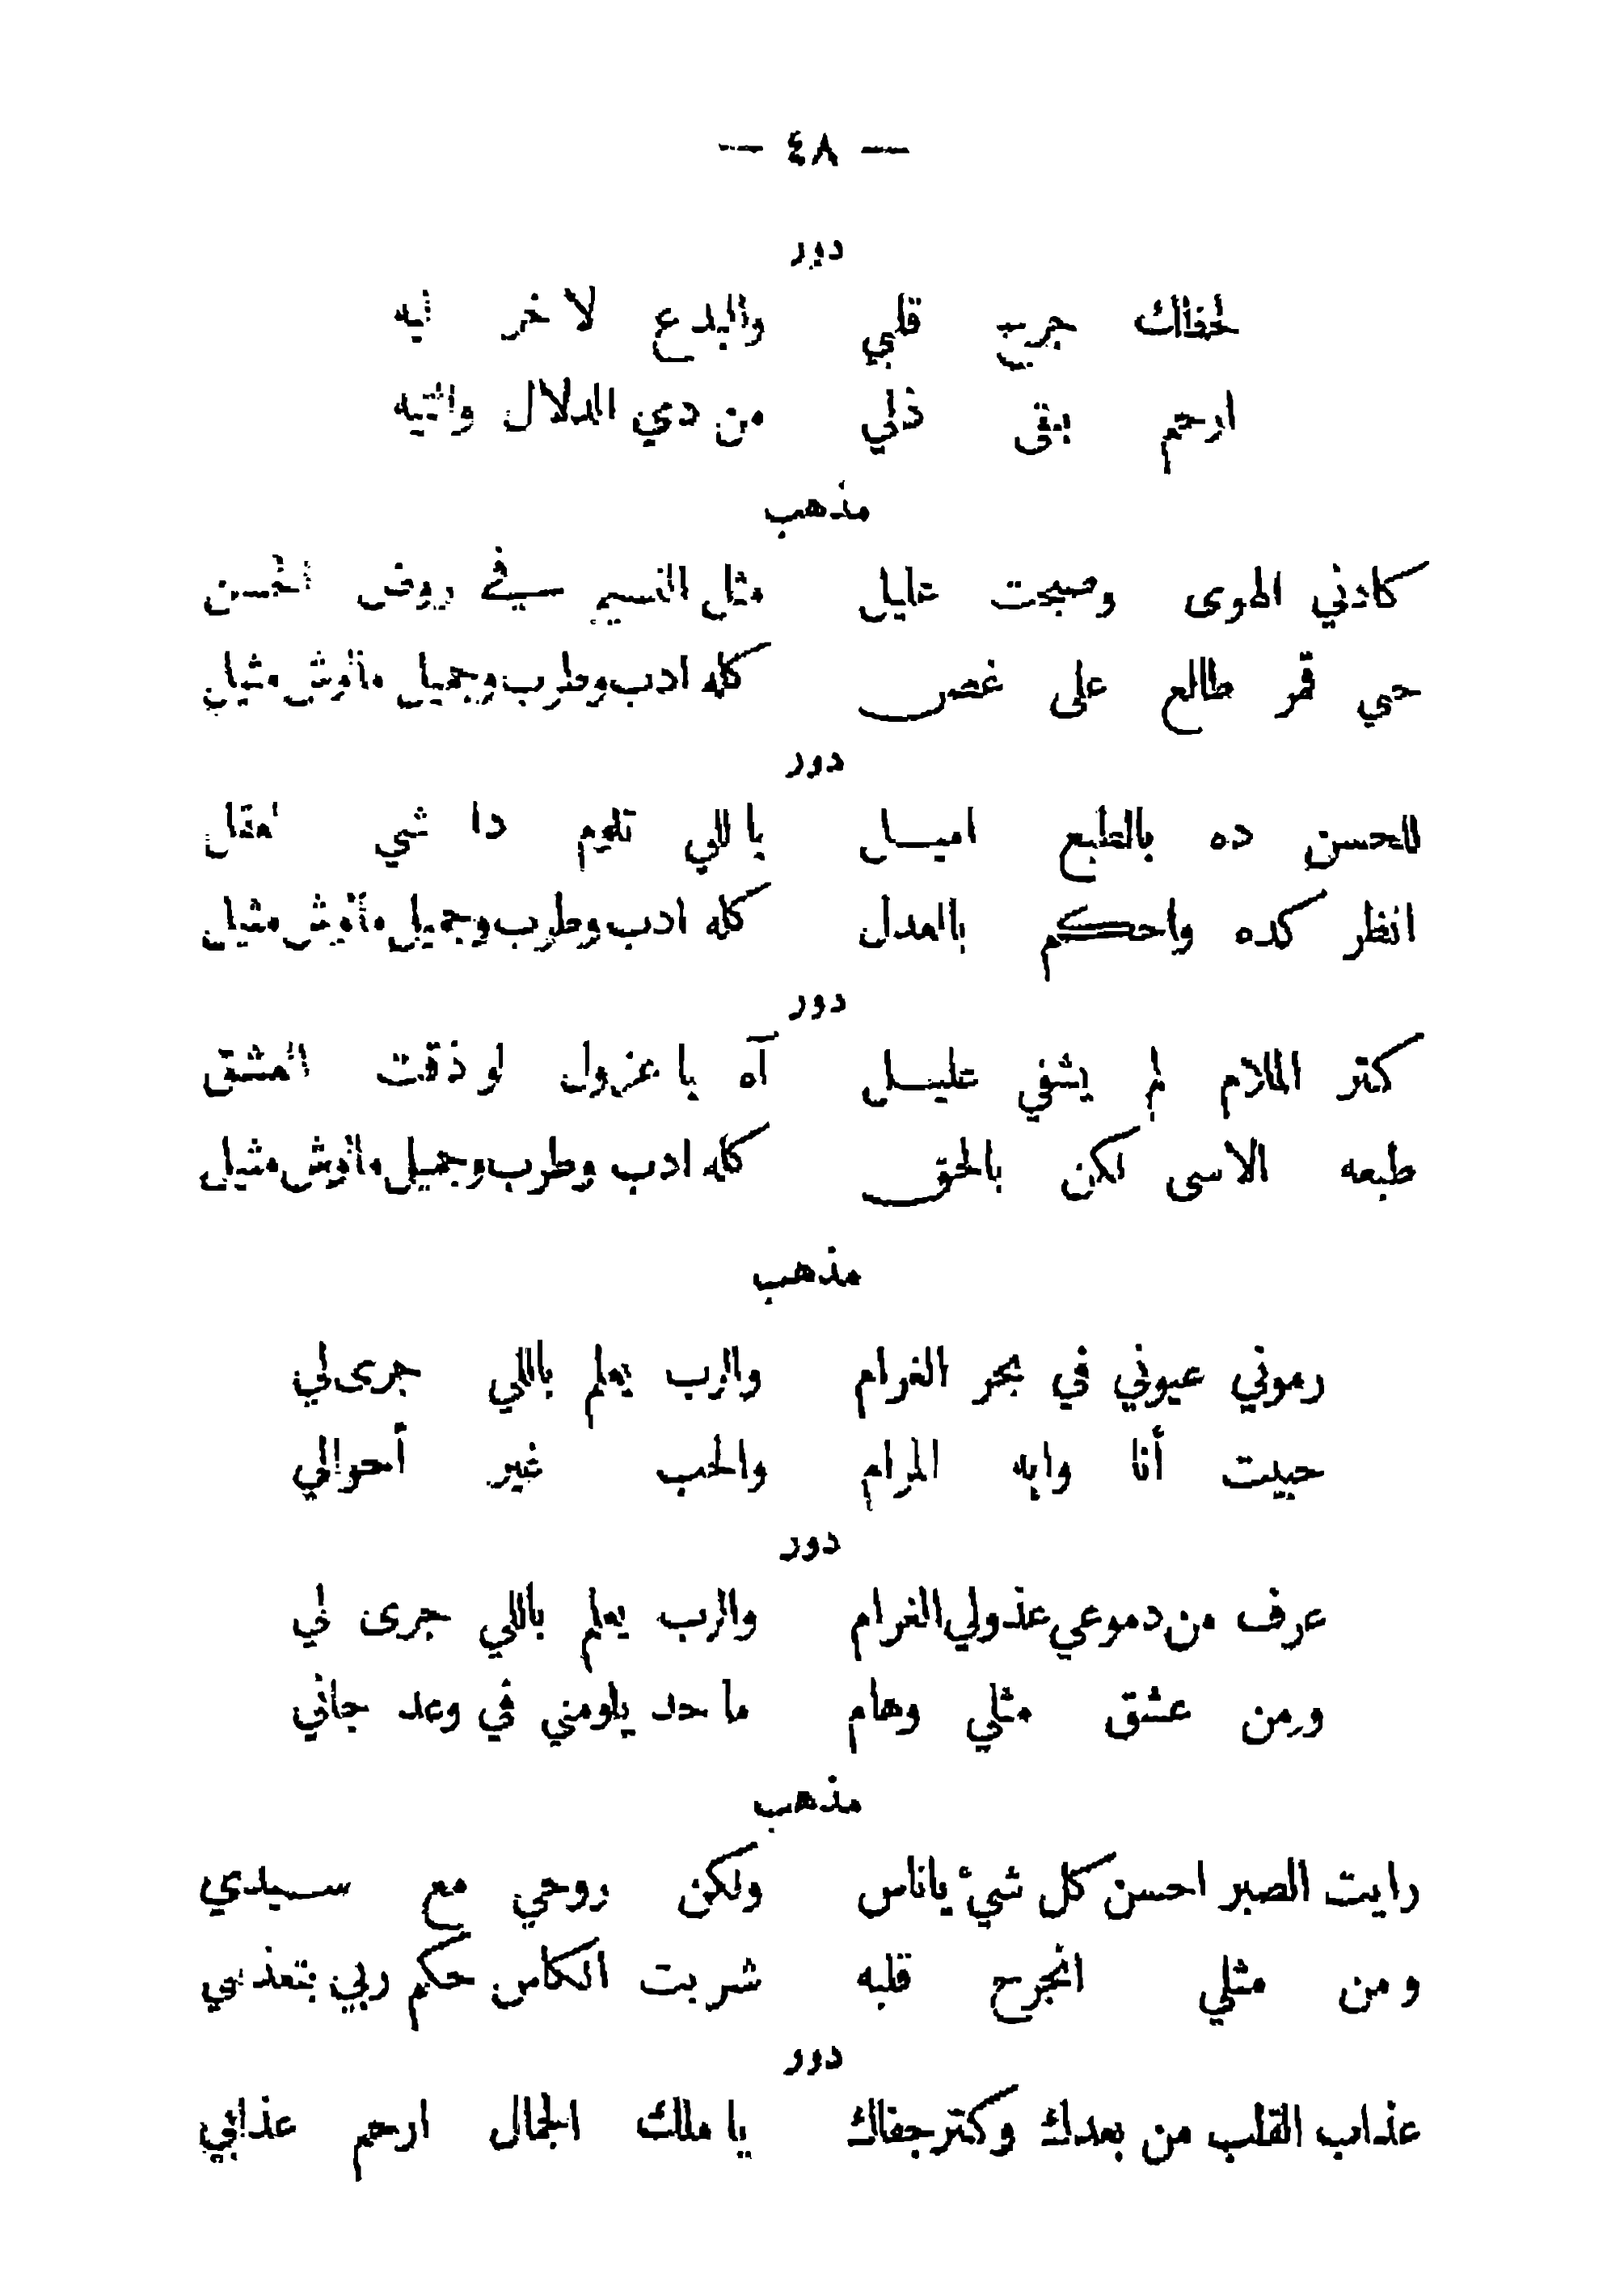 — ٤٨ —
دور
لحظاك جريح قلبي والبدع لاخر ليه
ارحم بقى ذلي من دي الدلال والتيه
مذهب
كادني الهوى وصبحت عليل مثل النسيم في روض الحسن
حبي قمر طالع على غصن كله ادب وطرب وجميل مالوش مثيل
دور
للحسن ده بالطبع اميل ياللي تلوم دا شي لعقل
انظر كده واحكم بالعدل كله ادب وطرب وجميل مالوش مثيل
دور
كتر الملام لم يشفي عليل آه يا عزول لو ذقت العشق
طبعه الاسى لكن بالحق كله ادب وطرب وجميل مالوش مثيل
مذهب
رموني عيوني في بحر الغرام والرب يعلم باللي جرى لي
حبيت أنا وايه المرام والحب غير أحوالي
دور
عرف من دموعي عذولي الغرام والرب يعلم باللي جرى لي
ومن عشق مثلي وهام ما حد يلومني في وعد جاني
مذهب
رايت الصبر احسن كل شيء ياناس ولكن روحي مع سيدي
ومن مثلي انجرح قلبه شربت الكاس حكم ربي بتعذبي
دور
عذاب القلب من بعدك وكتر جفاك يا ملك الجمال ارحم عذابي